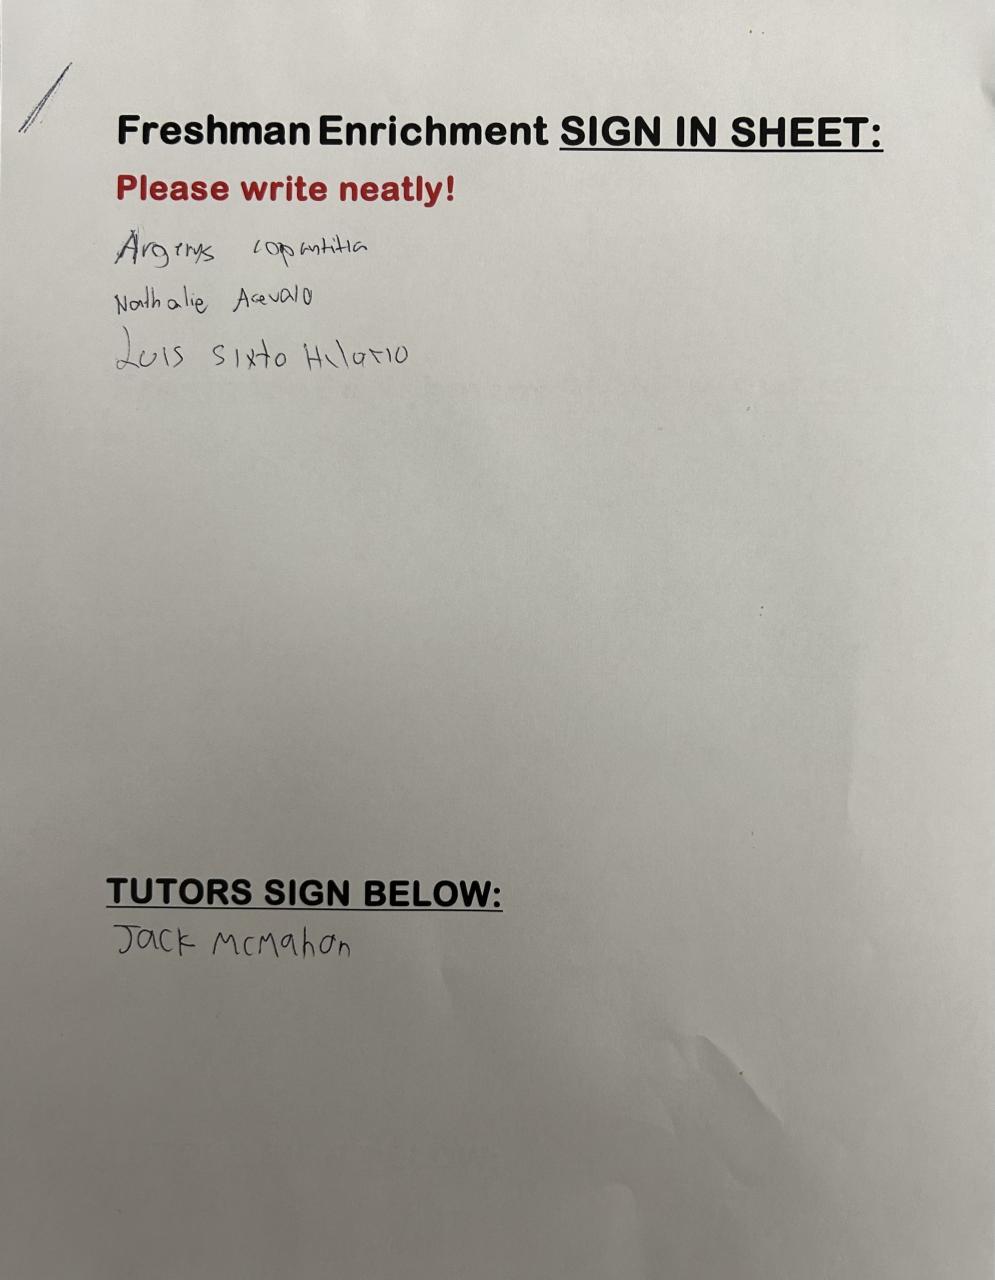 Freshman Enrichment SIGN IN SHEET:
Please write neatly!
Nathalie Acevalo
Luis Sixto Hilario
TUTORS SIGN BELOW:
Jack McMahon